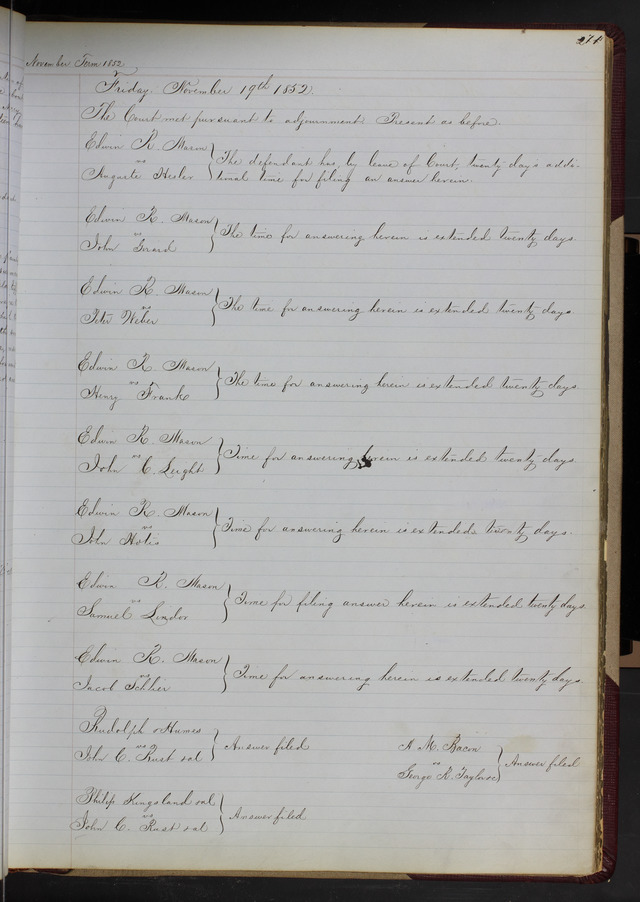 271
November Term 1852
Friday November 19th 1852.
The Court met pursuant to adjournment Present as before.
Edwin R. Mason
vs
Auguste Hesler
The defendant has, by leave of Court, twenty days addi-
tional time for filing an answer herein.
Edwin R. Mason
vs
John Gerard
The time for answering herein is extended twenty days.
Edwin R. Mason
vs
Peter Weber
The time for answering herein is extended twenty days.
Edwin R. Mason
vs
Henry Frank
The time for answering herein is extended twenty days.
Edwin R. Mason
vs
John C. Leight
Time for answering herein is extended twenty days.
Edwin R. Mason
vs
John
Time for answering herein is extended twenty days.
Edwin R. Mason
vs
Samuel
Time for filing answer herein is extended twenty days.
Edwin R. Mason
vs
Jacob
Time for answering herein is extended twenty days.
Rudolph Humes
vs
John C. Rust et al
Answer filed
A M. Bacon
vs
George R. Taylor
Answer filed
Philip Kingsland et al
vs
John C. Rust et al
Answer filed